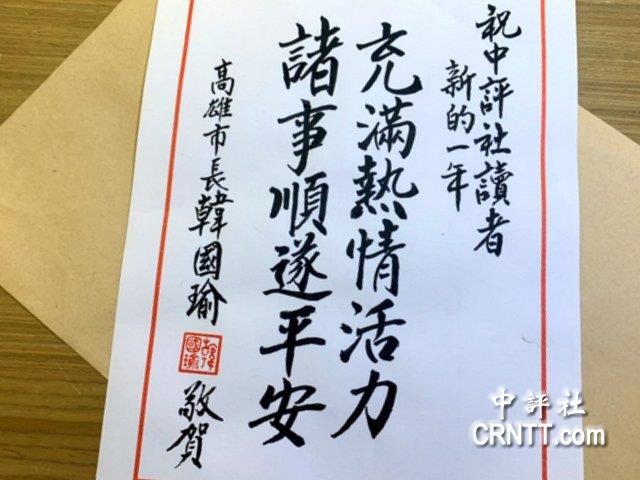 祝中評社讀者
新的一年
充滿熱情活力
諸事順遂平安
高雄市長韓國瑜
敬賀
中評社
CRNTT.com